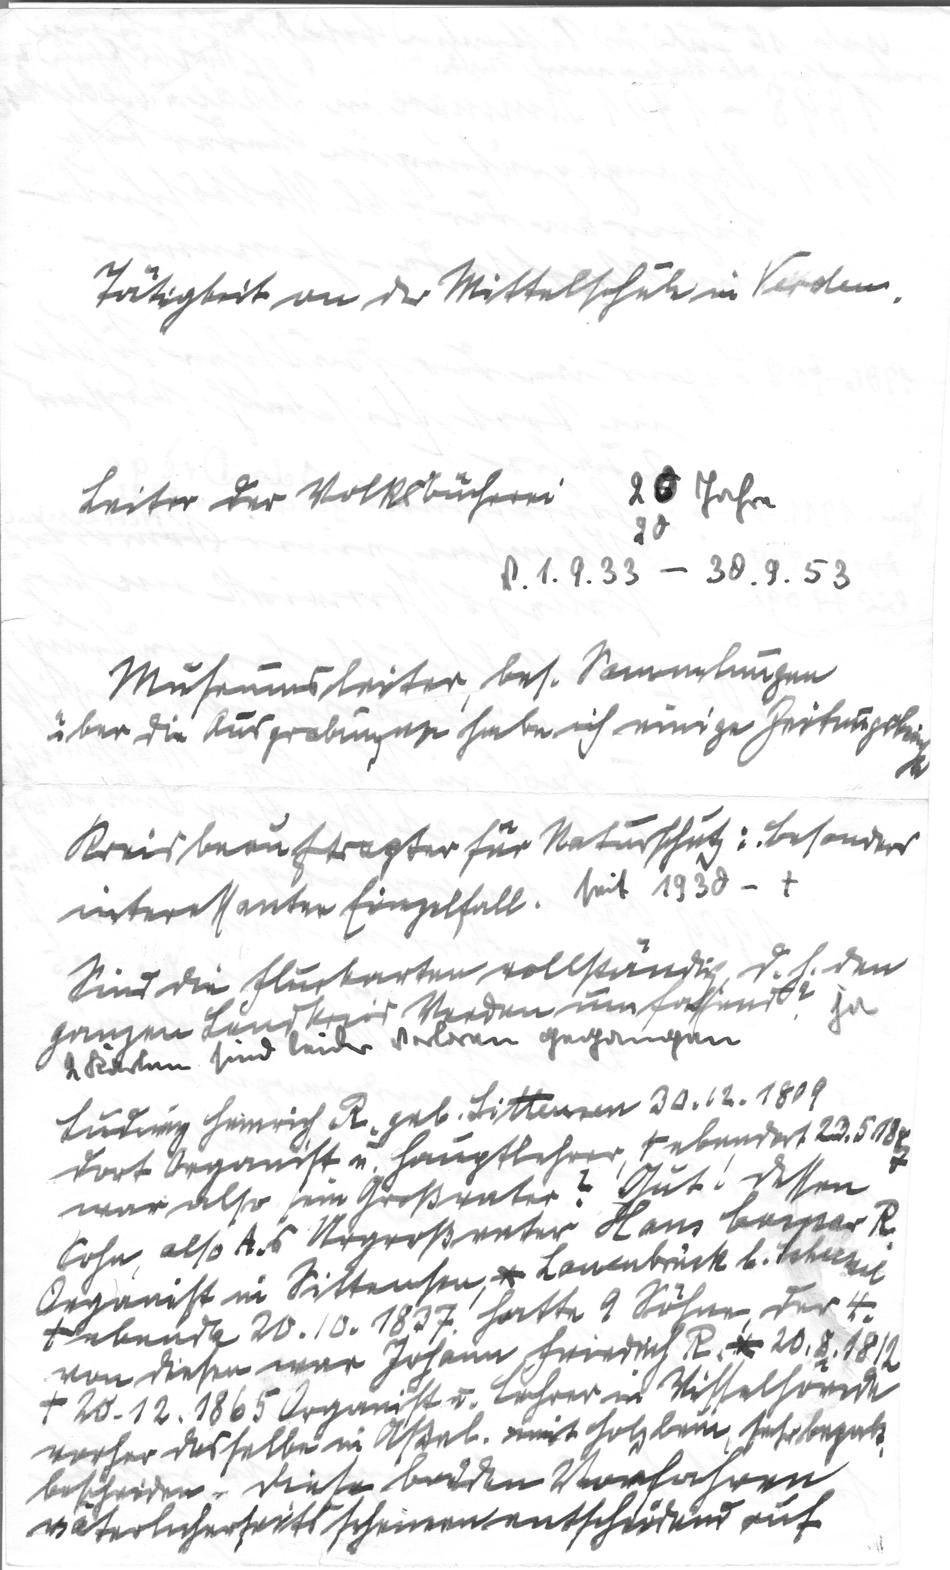 Tätigkeit an der Mittelschule in Verden.
Leiter der Volksbücherei 20 Jahre
20
v. 1.9.33 – 30.9.53
Museumsleiter, bes. Sammlungen
über die Ausgrabungen habe ich einige
Kreisbeauftragter für Naturschutz: besonders
interessanter Einzelfall. seit 1930 – +
Sind die Flurkarten vollständig, d. h. den
ganzen Landkreis Verden umfassend? ja
2 Karten sind leider verloren gegangen
Ludwig Heinrich R. geb. Sittensen 30.12.1809
dort Organist u. Hauptlehrer, † ebendort 23.5.
war also sein Großvater? Gut! Dessen
Sohn, also A.s Urgroßvater Hans R.
Organist in Sittensen, * Lauenbrück b.
† ebenda 20.10.1837. hatte 9 Söhne, der 4.
von diesen war Johann Friedrich R. * 20.8.1812
† 20.12.1865 Organist u. Lehrer in Visselhövede
vorher dasselbe in mit Holzbein, sehr begabt,
bescheiden – Diese beiden Vorfahren
väterlicherseits scheinen entscheidend auf